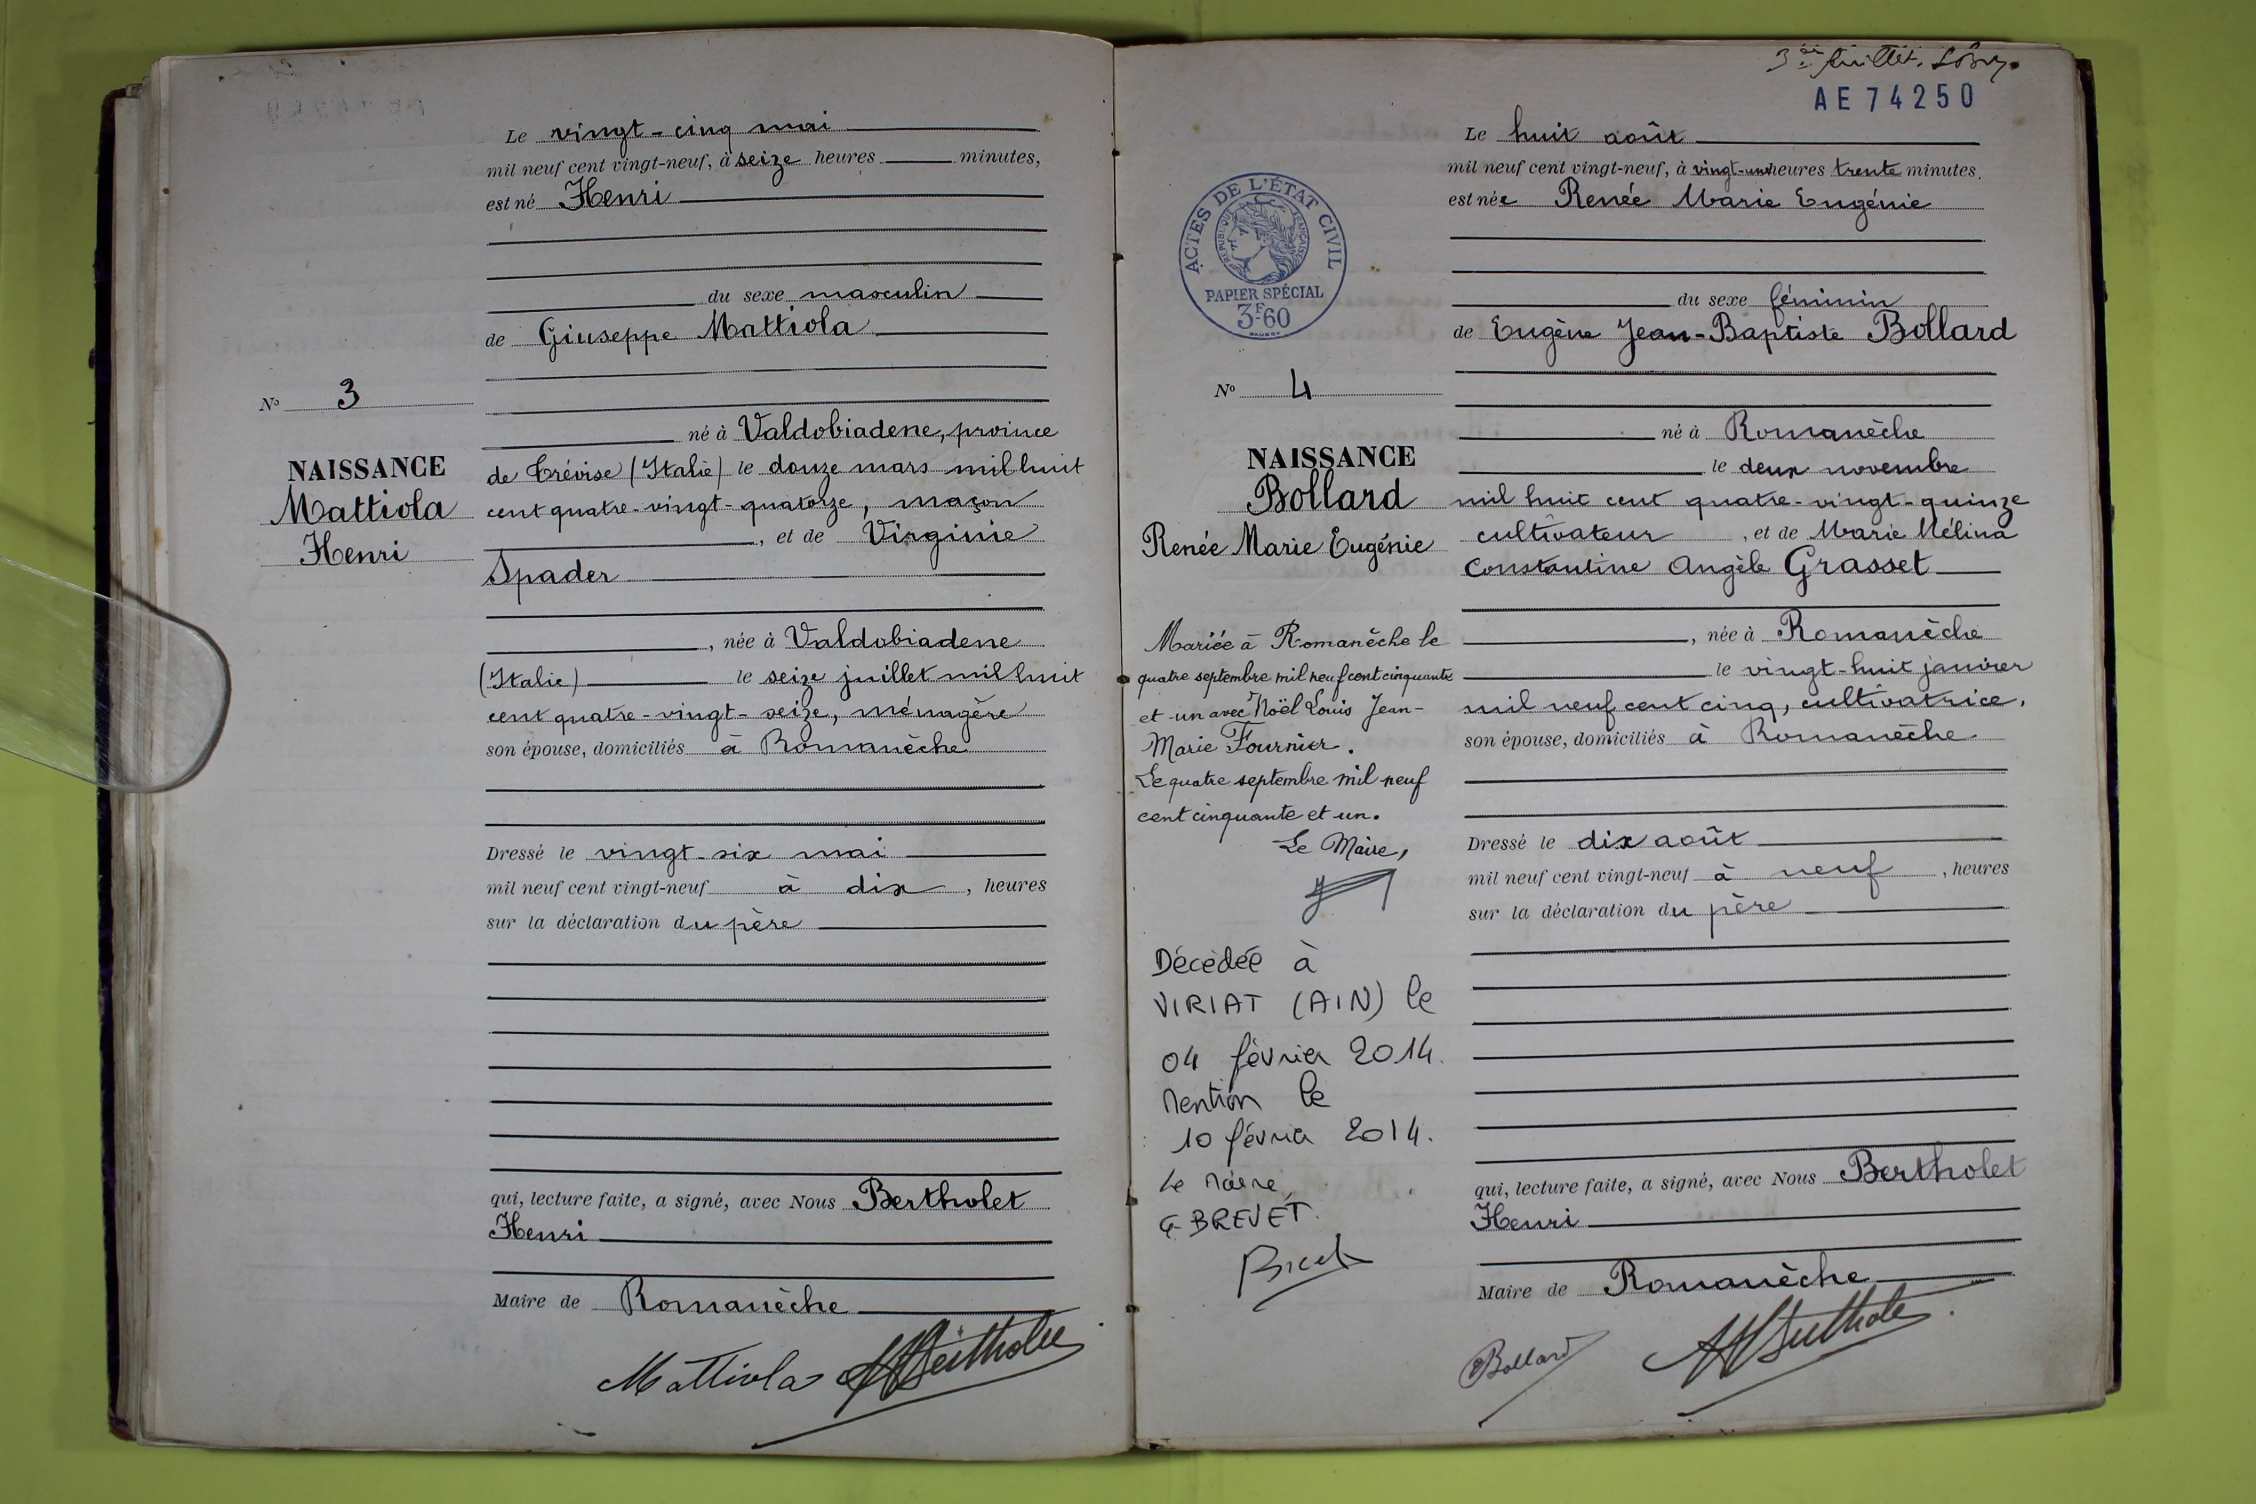 Le vingt-cinq mai
mil neuf cent vingt-neuf, à seize heures minutes,
est né Henri
du sexe masculin
de Giuseppe Mattiola
Nº 3
né à Valdobiadene, province
NAISSANCE
de Trévise (Italie) le douze mars mil huit
Mattiola
cent quatre-vingt-quatorze, maçon
Henri
, et de Virginie
Spader
, née à Valdobiadene
(Italie) le seize juillet mil huit
cent quatre-vingt-seize, ménagère
son épouse, domiciliés à Romanèche
Dressé le vingt-six mai
mil neuf cent vingt-neuf à dix , heures
sur la déclaration du père
qui, lecture faite, a signé, avec Nous Bertholet
Henri
Maire de Romanèche
Mattiola HBertholet
3è feuillet.
AE 74250
Le huit août
mil neuf cent vingt-neuf, à vingt-une heures trente minutes,
est née Renée Marie Eugénie
ACTES DE L'ÉTAT CIVIL
RÉPUBLIQUE FRANÇAISE
PAPIER SPÉCIAL
3F60
du sexe féminin
de Eugène Jean-Baptiste Bollard
Nº 4
né à Romanèche
NAISSANCE
le deux novembre
Bollard
mil huit cent quatre-vingt-quinze
Renée Marie Eugénie
cultivateur , et de Marie Mélina
Constantine Angèle Grasset
, née à Romanèche
le vingt-huit janvier
mil neuf cent cinq, cultivatrice,
son épouse, domiciliés à Romanèche
Mariée à Romanèche le
quatre septembre mil neuf cent cinquante
et-un avec Noël Louis Jean-
Marie Fournier.
Le quatre septembre mil neuf
cent cinquante et un.
Le Maire,
Dressé le dix août
mil neuf cent vingt-neuf à neuf , heures
sur la déclaration du père
Décédée à
VIRIAT (AIN) le
04 février 2014.
Mention le
10 février 2014.
Le Maire,
G BREVET.
qui, lecture faite, a signé, avec Nous Bertholet
Henri
Maire de Romanèche
Bollard HBertholet